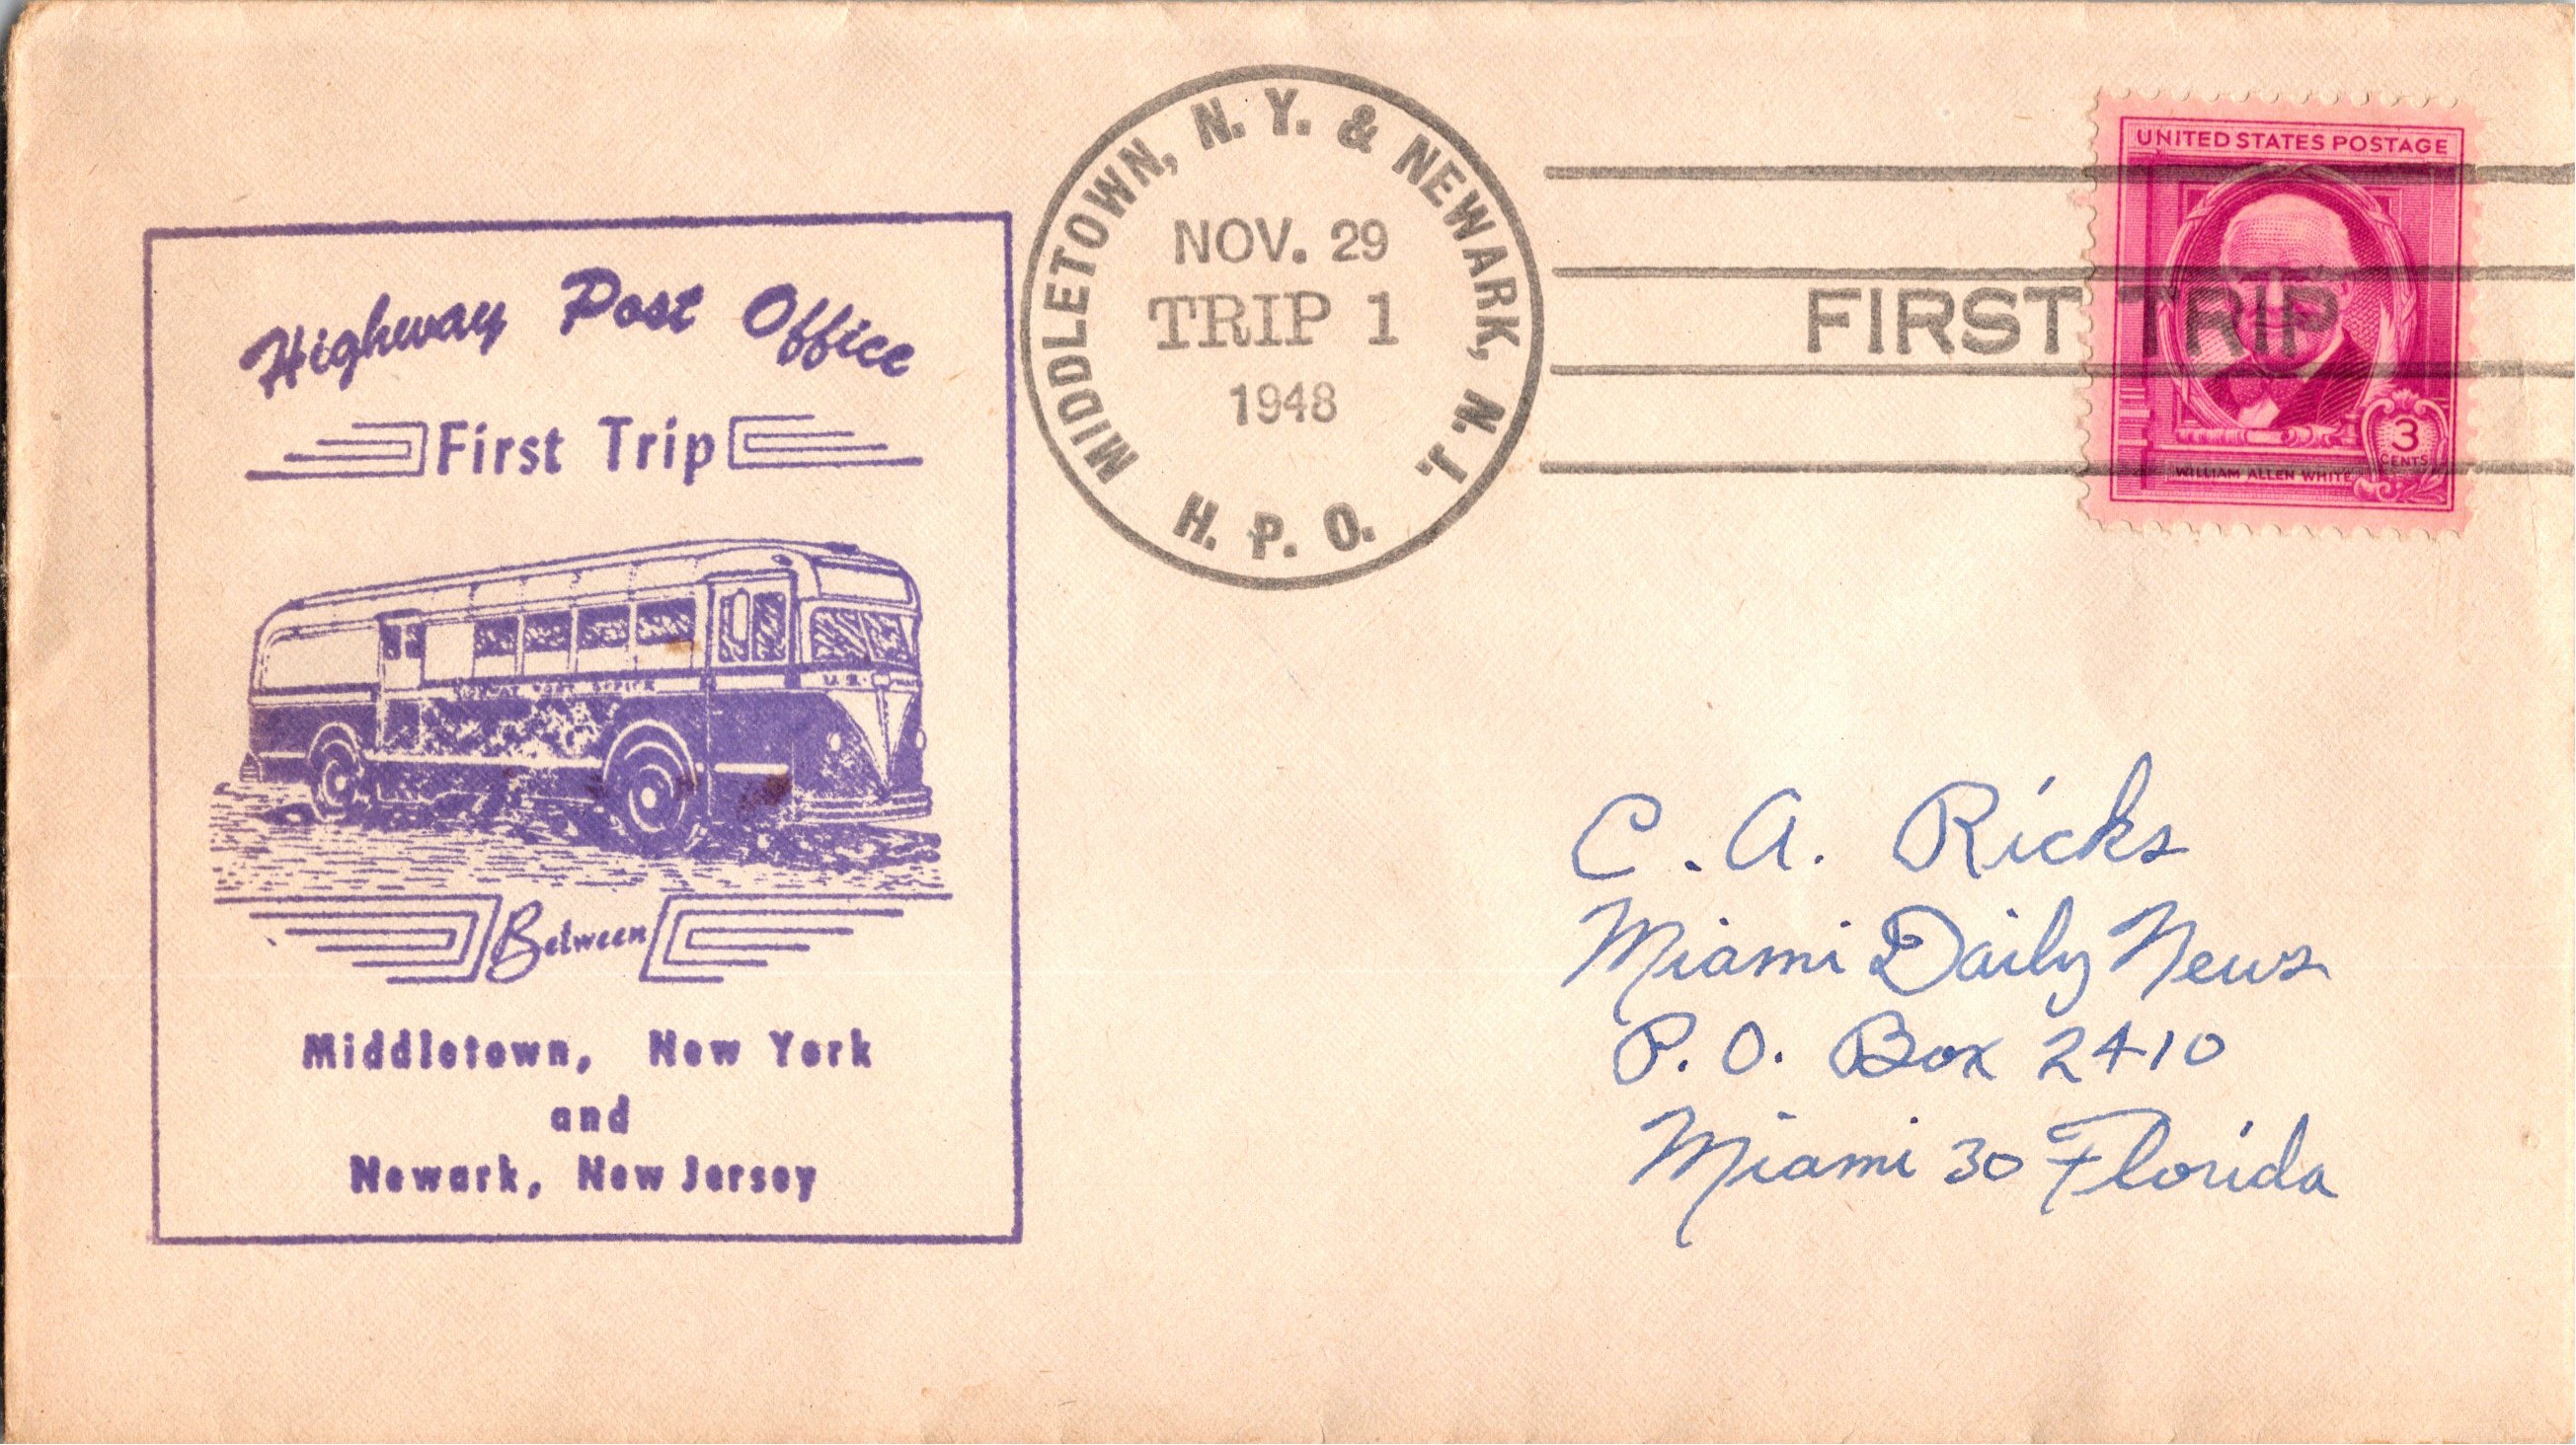 Highway Post Office
First Trip
U.S.
Between
Middletown, New York
and
Newark, New Jersey
MIDDLETOWN, N. Y. & NEWARK, N. J.
NOV. 29
TRIP 1
1948
H. P. O.
FIRST TRIP
UNITED STATES POSTAGE
3
CENTS
WILLIAM ALLEN WHITE
C. A. Ricks
Miami Daily News
P. O. Box 2410
Miami 30 Florida